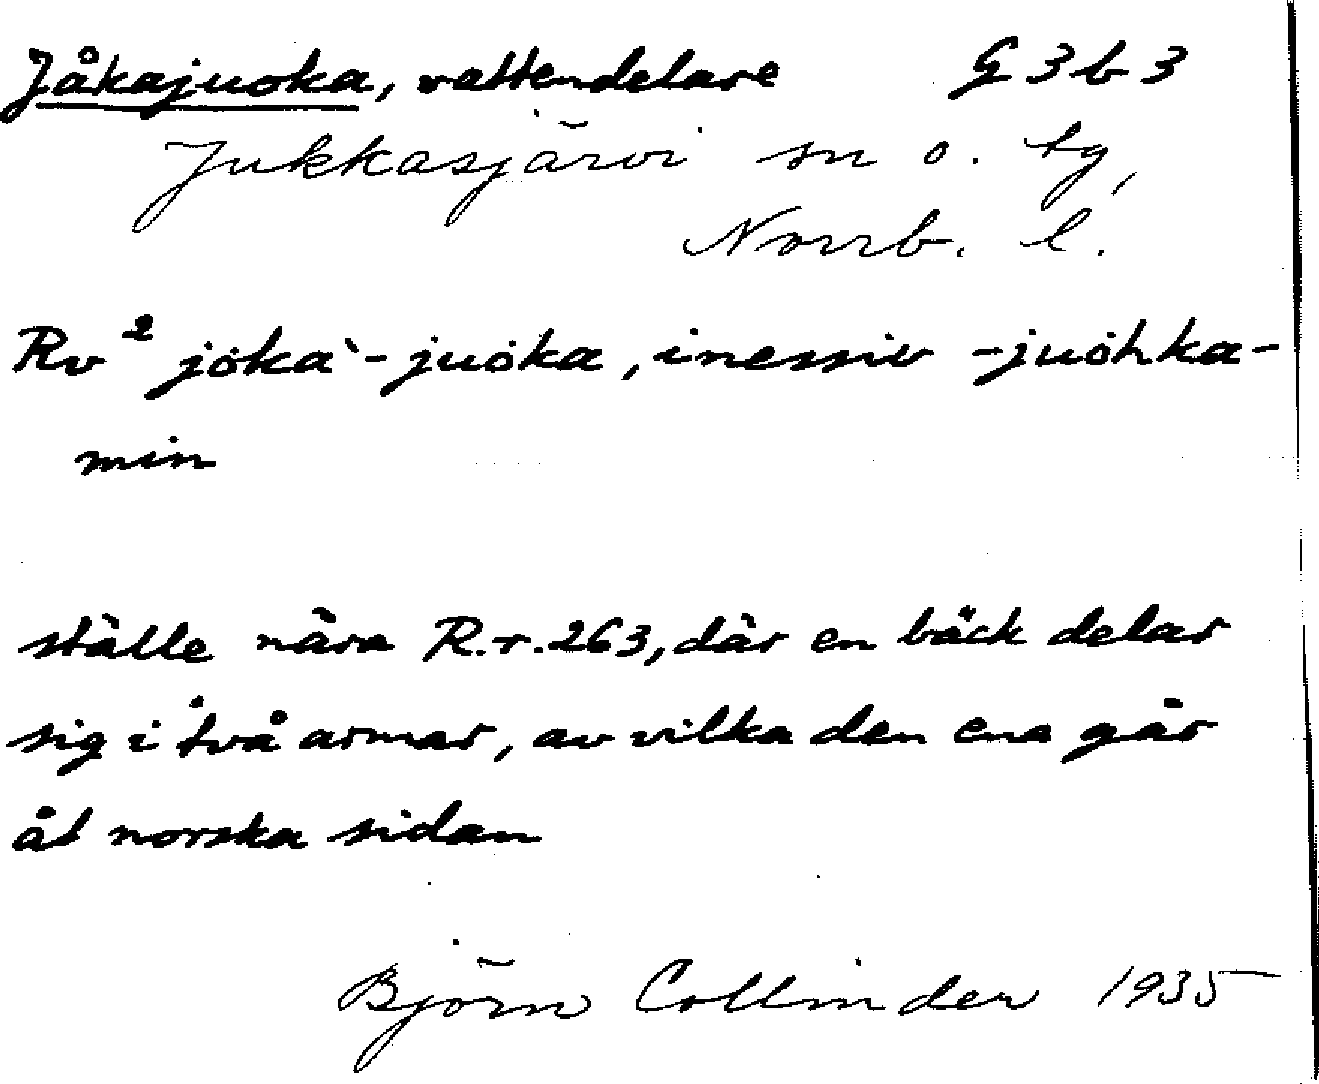 Jåkajuoka, vattendelare G 3 b 3
Jukkasjärvi sn o. tg,
Norrb. l.
Rv² jȯkaˋ-juȯka, inessiv -juȯhka-
min
ställe nära R.r. 263, där en bäck delar
sig i två armar, av vilka den ena går
åt norska sidan
Björn Collinder 1935